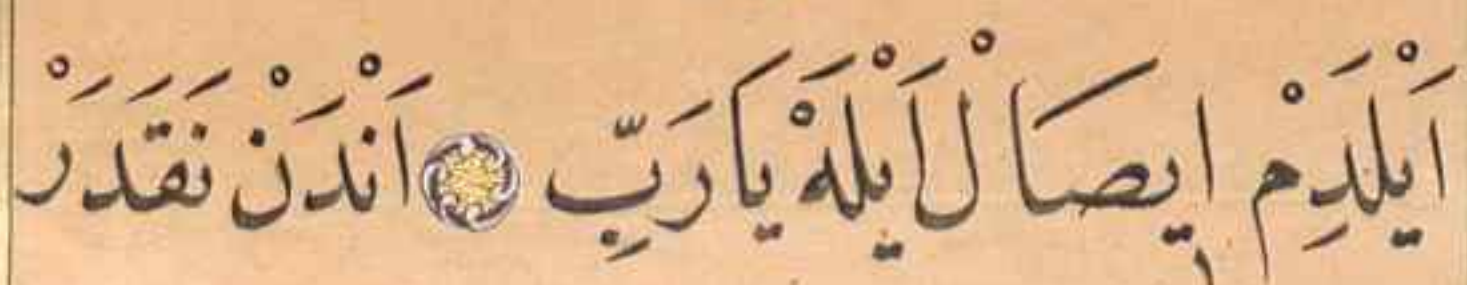 اَيْلَدِمْ ايصَالْ اَيْلَهْ يَا رَبِّ ۞ اَنْدَنْ نَقَدَرْ